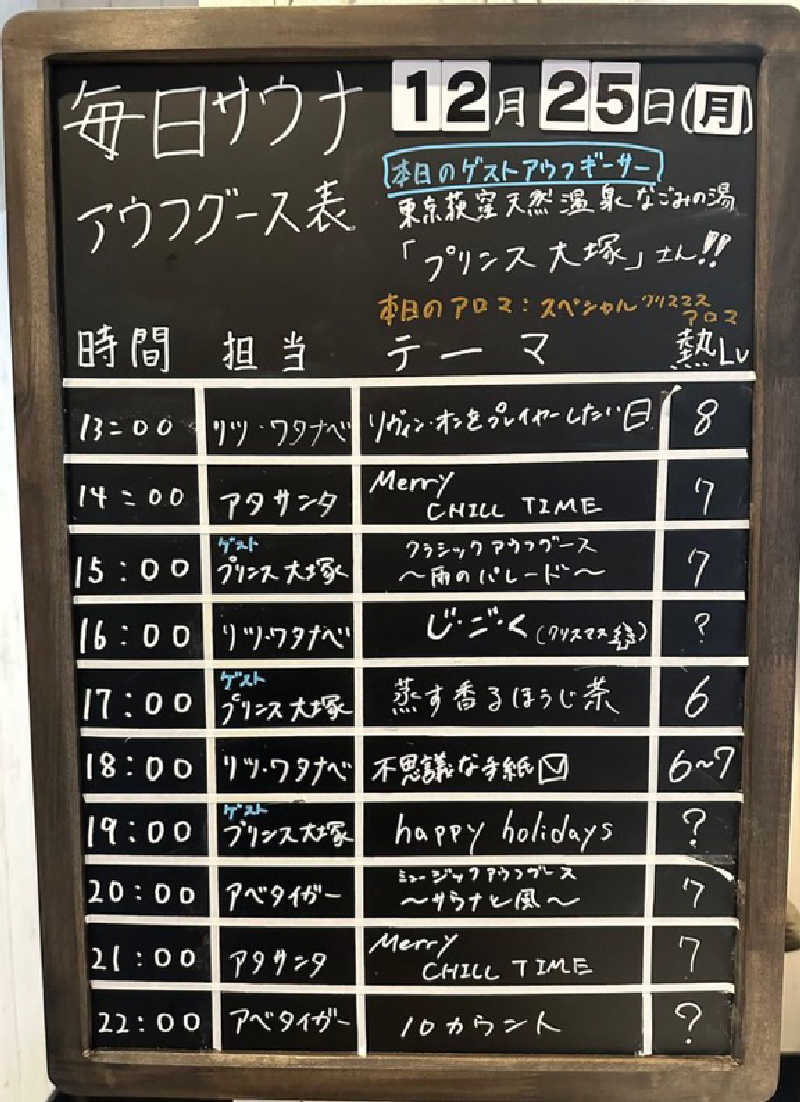 毎日サウナ 12月25日(月)
アウフグース表
本日のゲストアウフギーサー
東京荻窪天然温泉なごみの湯
「プリンス大塚」さん!!
本日のアロマ：スペシャルクリスマスアロマ
時間 担当 テーマ 熱Lv
13:00 リツ・ワタナベ リヴィン・オンをプレイヤーしたい日 8
14:00 アタサンタ Merry
CHILL TIME 7
15:00 ゲスト
プリンス大塚 クラシックアウフグース
〜雨のパレード〜 7
16:00 リツ・ワタナベ じ・ご・く(クリスマス) ?
17:00 ゲスト
プリンス大塚 蒸す香るほうじ茶 6
18:00 リツ・ワタナベ 不思議な手紙 6〜7
19:00 ゲスト
プリンス大塚 happy holidays ?
20:00 アベタイガー ミュージックアウフグース
〜サウナと風〜 7
21:00 アタサンタ Merry
CHILL TIME 7
22:00 アベタイガー 10カウント ?